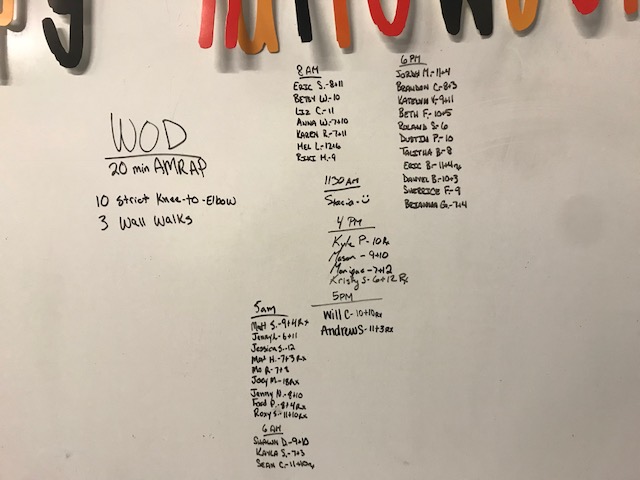 y Halloween
WOD
20 min AMRAP
10 Strict Knee-to-Elbow
3 Wall Walks
5am
Matt S.-9+4Rx
Jenny L-6+11
Jessica S.-12
Mat H.-7+3Rx
Mo R-7+8
Joey M-18Rx
Jenny N.-8+10
Ford P.-8+4Rx
Roxy S.-11+10Rx
6AM
Shawn D.-9+10
Kayla S.-7+3
Sean C.-11+10
8AM
Eric S.-8+11
Betsy W.-10
Liz C.-11
Anna W.-7+10
Karen R.-7+11
Mel L-12+6
Riki M.-9
1130AM
Stacia-☺
4PM
Kyle P-10Rx
Mason -9+10
Monique-7+12
Kristy S-6+12 Rx
5PM
Will C-10+10Rx
Andrew S-11+3Rx
6PM
M.-11+4
Brandon C.-8+3
Katelyn V.-9+11
Beth F.-10+5
Roland S-6
Dustin P.-10
Talitha B-8
Eric B.-11+4
Daniel B-10+3
Sherrice F.-9
Brianna G.-7+4